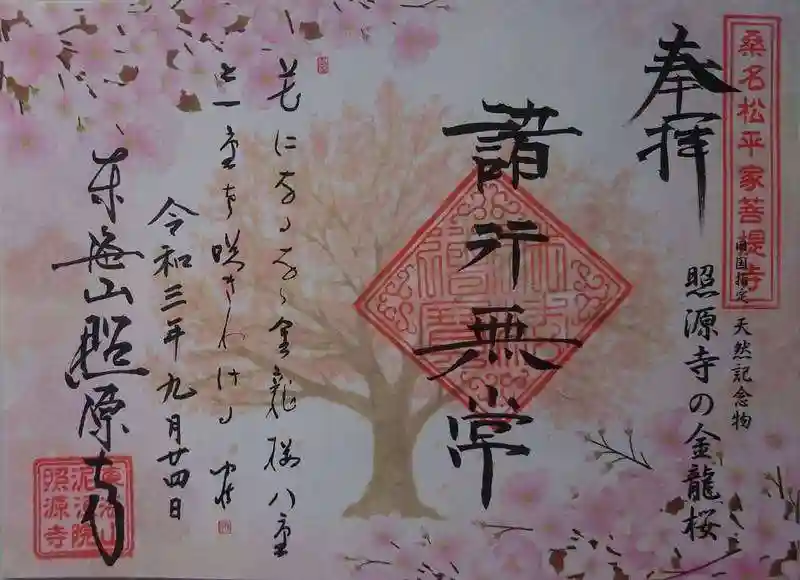 桑名松平家菩提寺
奉拝
国指定 天然記念物
照源寺の金龍桜
諸行無常
花になるなら金龍桜八重
一重も咲きわける
令和三年九月廿四日
東海山照源寺
東海山
泥洹院
照源寺